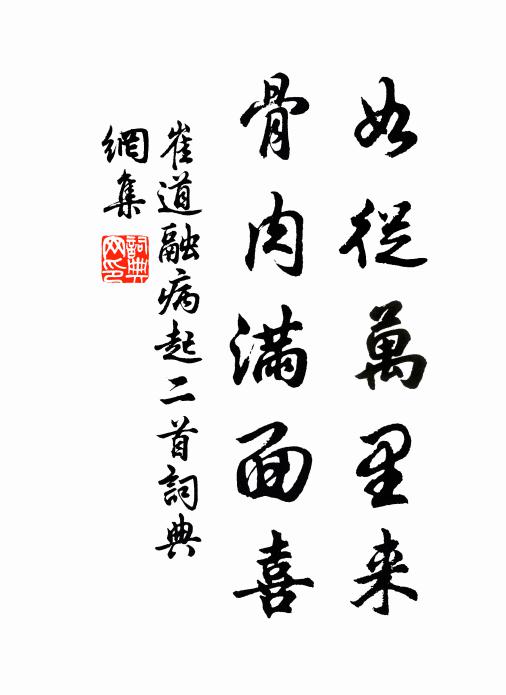 如從萬里来
骨肉满面喜
崔道融病起二首詞典
網集
詞典
网印